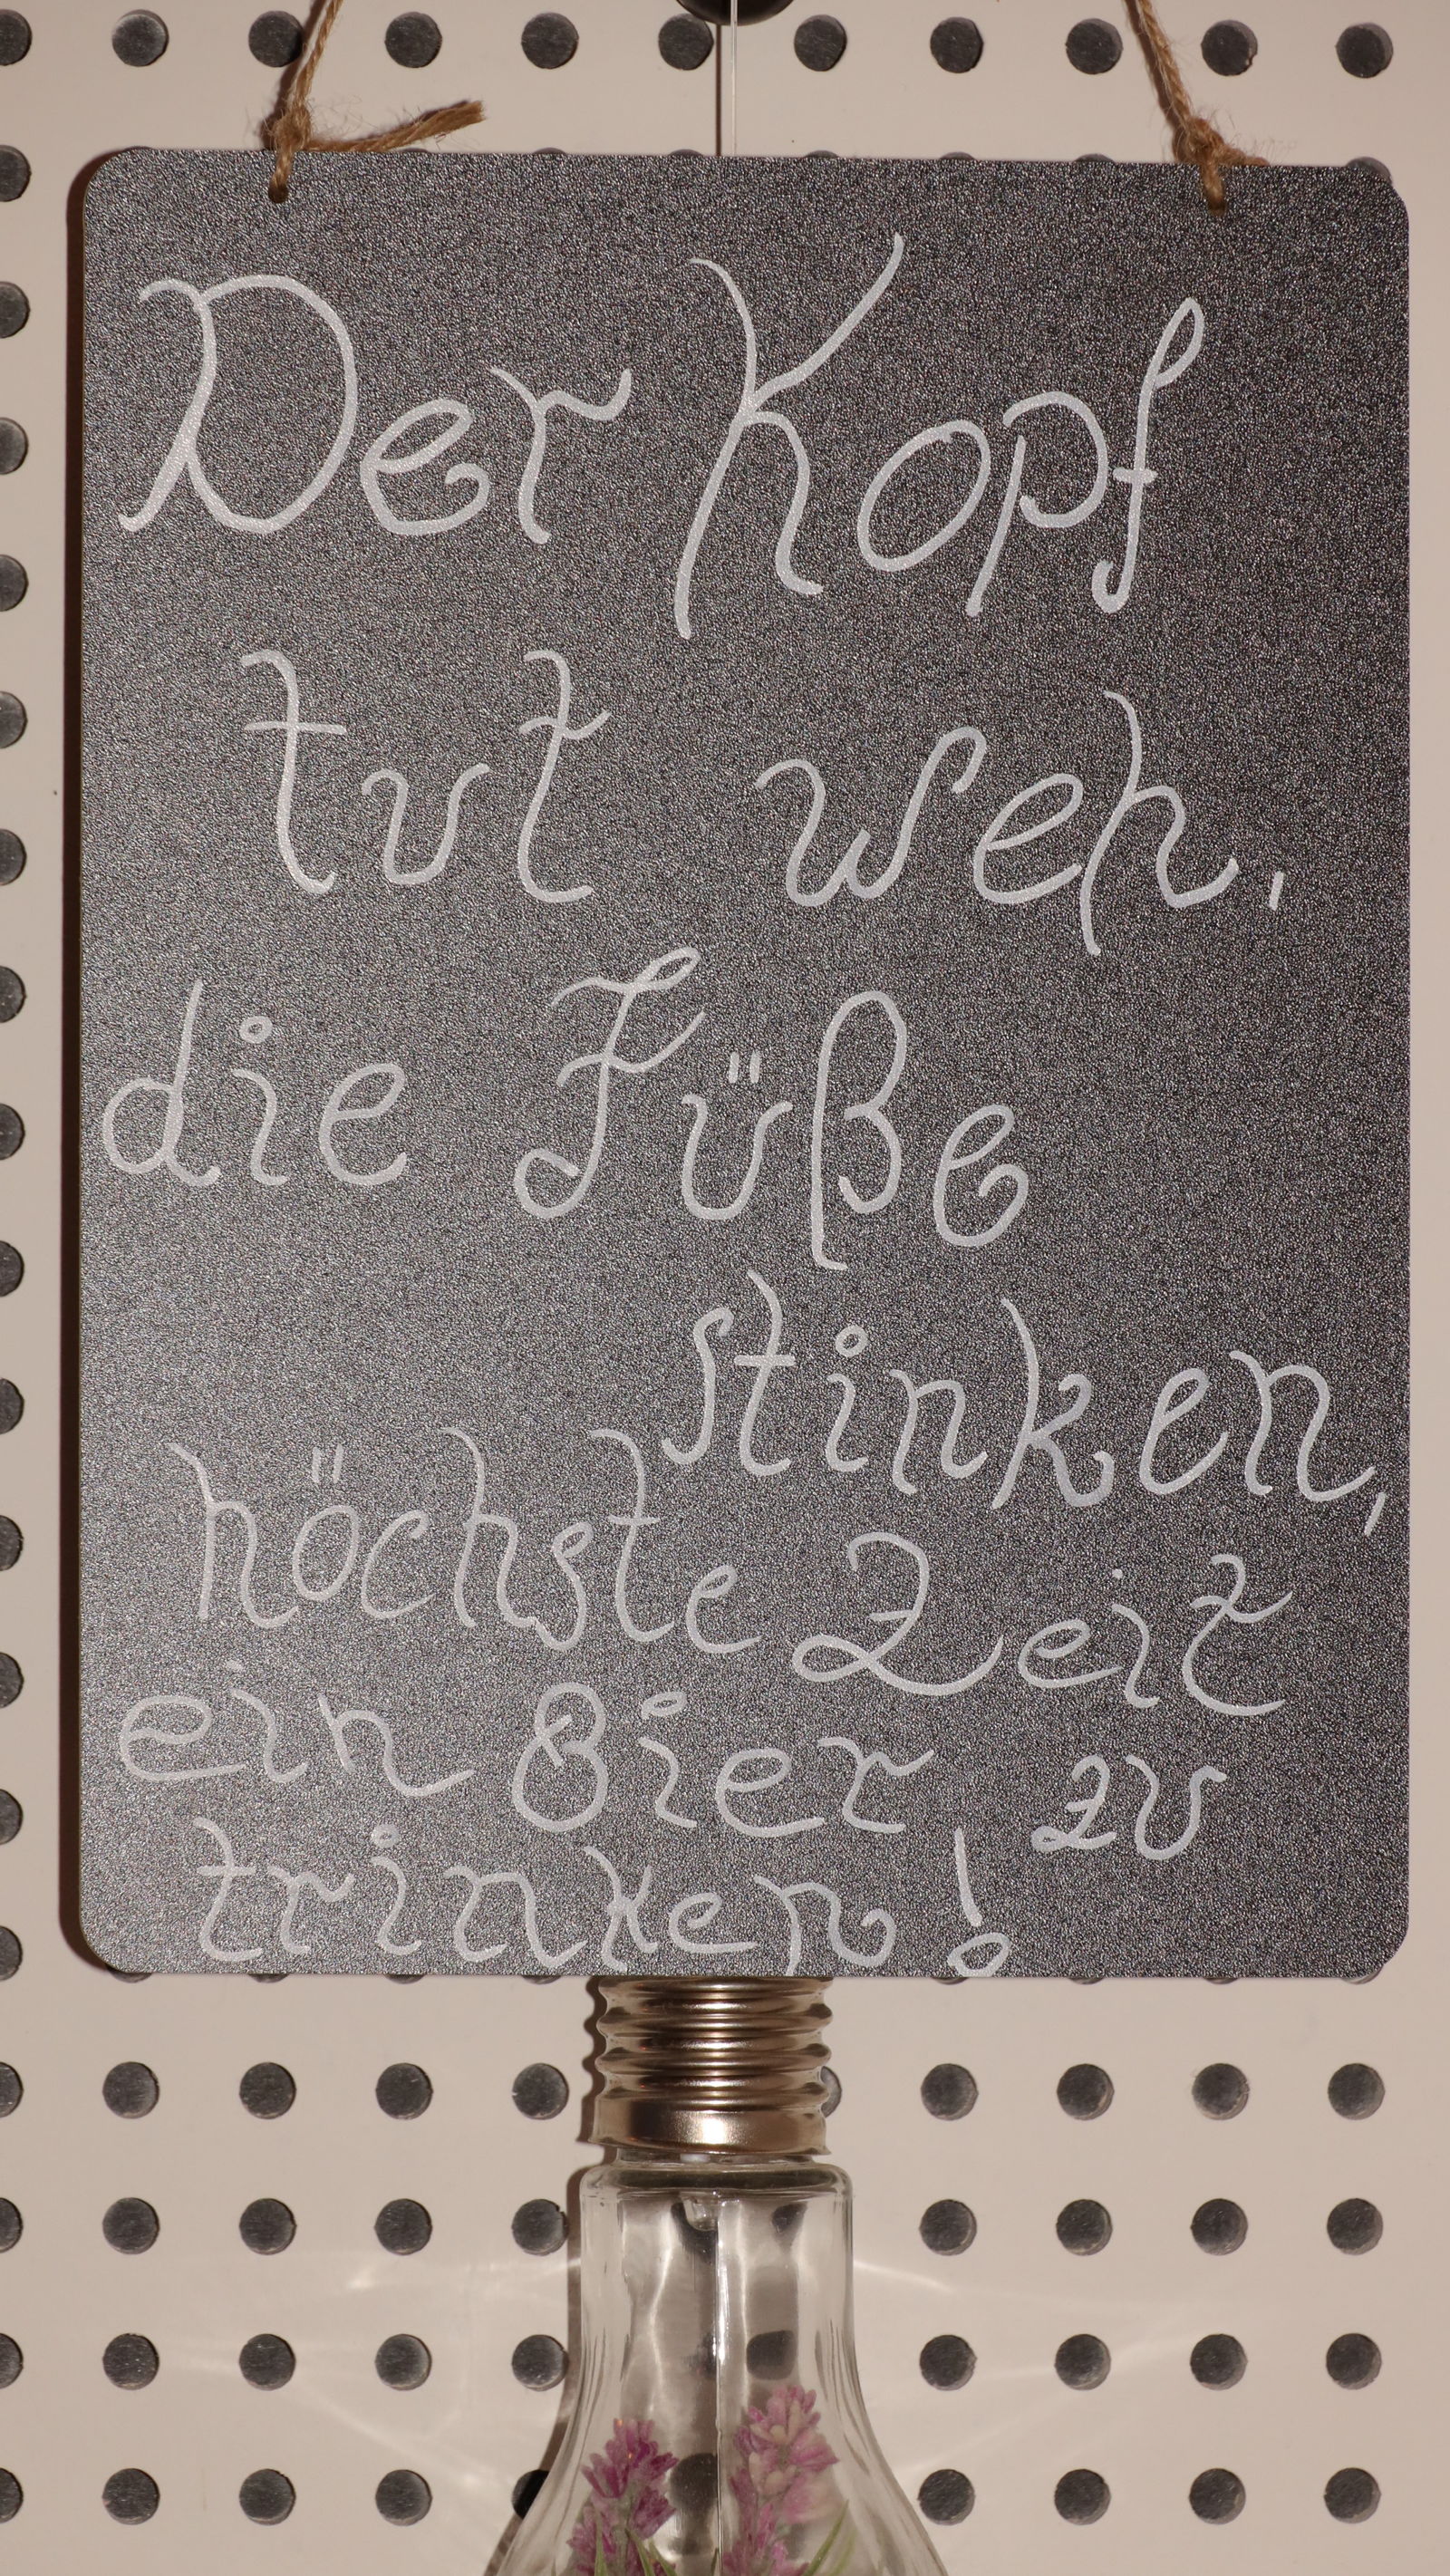 Der Kopf
tut weh,
die Füße
stinken,
höchste Zeit
ein Bier zu
trinken!